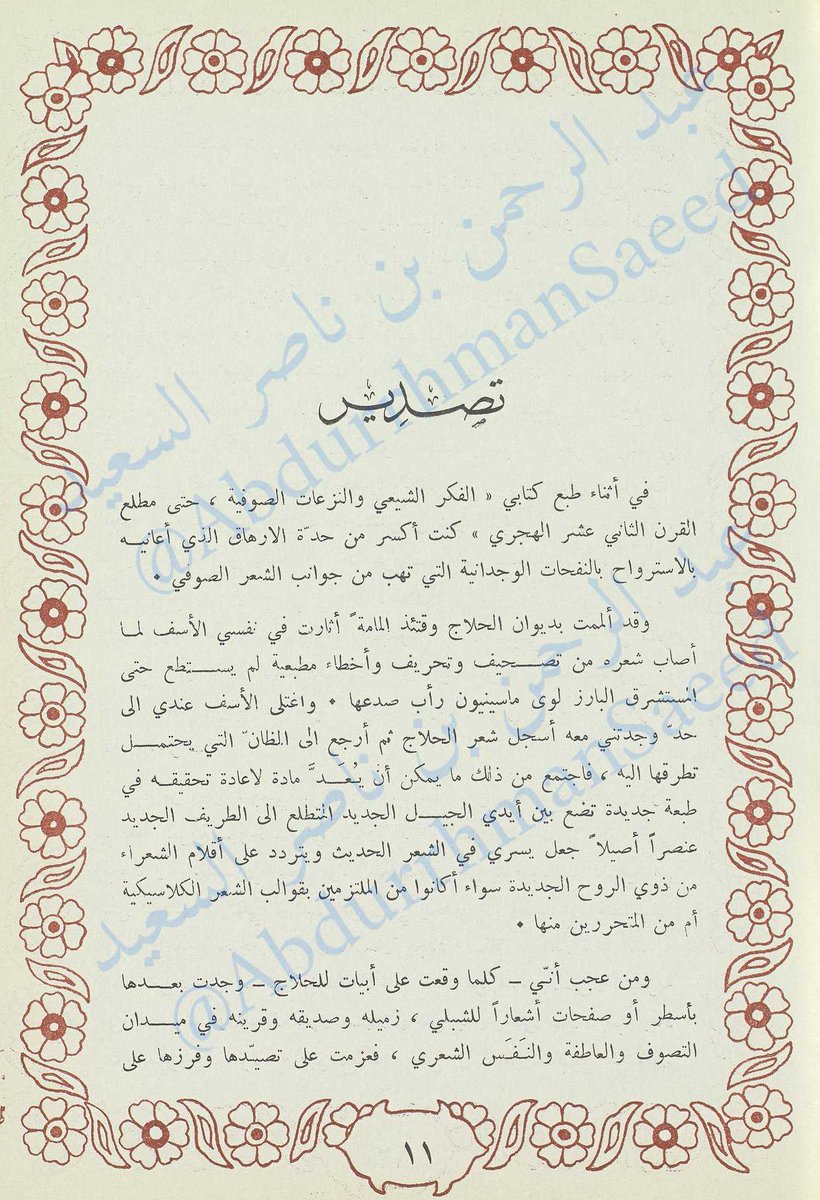 تصدير
في أثناء طبع كتابي « الفكر الشيعي والنزعات الصوفية ، حتى مطلع
القرن الثاني عشر الهجري » كنت أكسر من حدّة الارهاق الذي أعانيه
بالاسترواح بالنفحات الوجدانية التي تهب من جوانب الشعر الصوفي .
وقد ألممت بديوان الحلاج وقتئذ المامةً أثارت في نفسي الأسف لما
أصاب شعره من تصحيف وتحريف وأخطاء مطبعية لم يستطع حتى
المستشرق البارز لوى ماسينيون رأب صدعها . واغتلى الأسف عندي الى
حدّ وجدتني معه أسجل شعر الحلاج ثم أرجع الى المظانّ التي يحتمل
تطرقها اليه ، فاجتمع من ذلك ما يمكن أن يُعَدَّ مادة لاعادة تحقيقه في
طبعة جديدة تضع بين أيدي الجيل الجديد المتطلع الى الطريف الجديد
عنصراً أصيلاً جعل يسري في الشعر الحديث ويتردد على أقلام الشعراء
من ذوي الروح الجديدة سواء أكانوا من الملتزمين بقوالب الشعر الكلاسيكية
أم من المتحررين منها .
ومن عجب أنّي – كلما وقعت على أبيات للحلاج – وجدت بعدها
بأسطر أو صفحات أشعاراً للشبلي ، زميله وصديقه وقرينه في ميدان
التصوف والعاطفة والنَفَس الشعري ، فعزمت على تصيّدها وفرزها على
١١
عبد الرحمن بن ناصر السعيد
@AbdurrhmanSaeed
عبد الرحمن بن ناصر السعيد
@AbdurrhmanSaeed